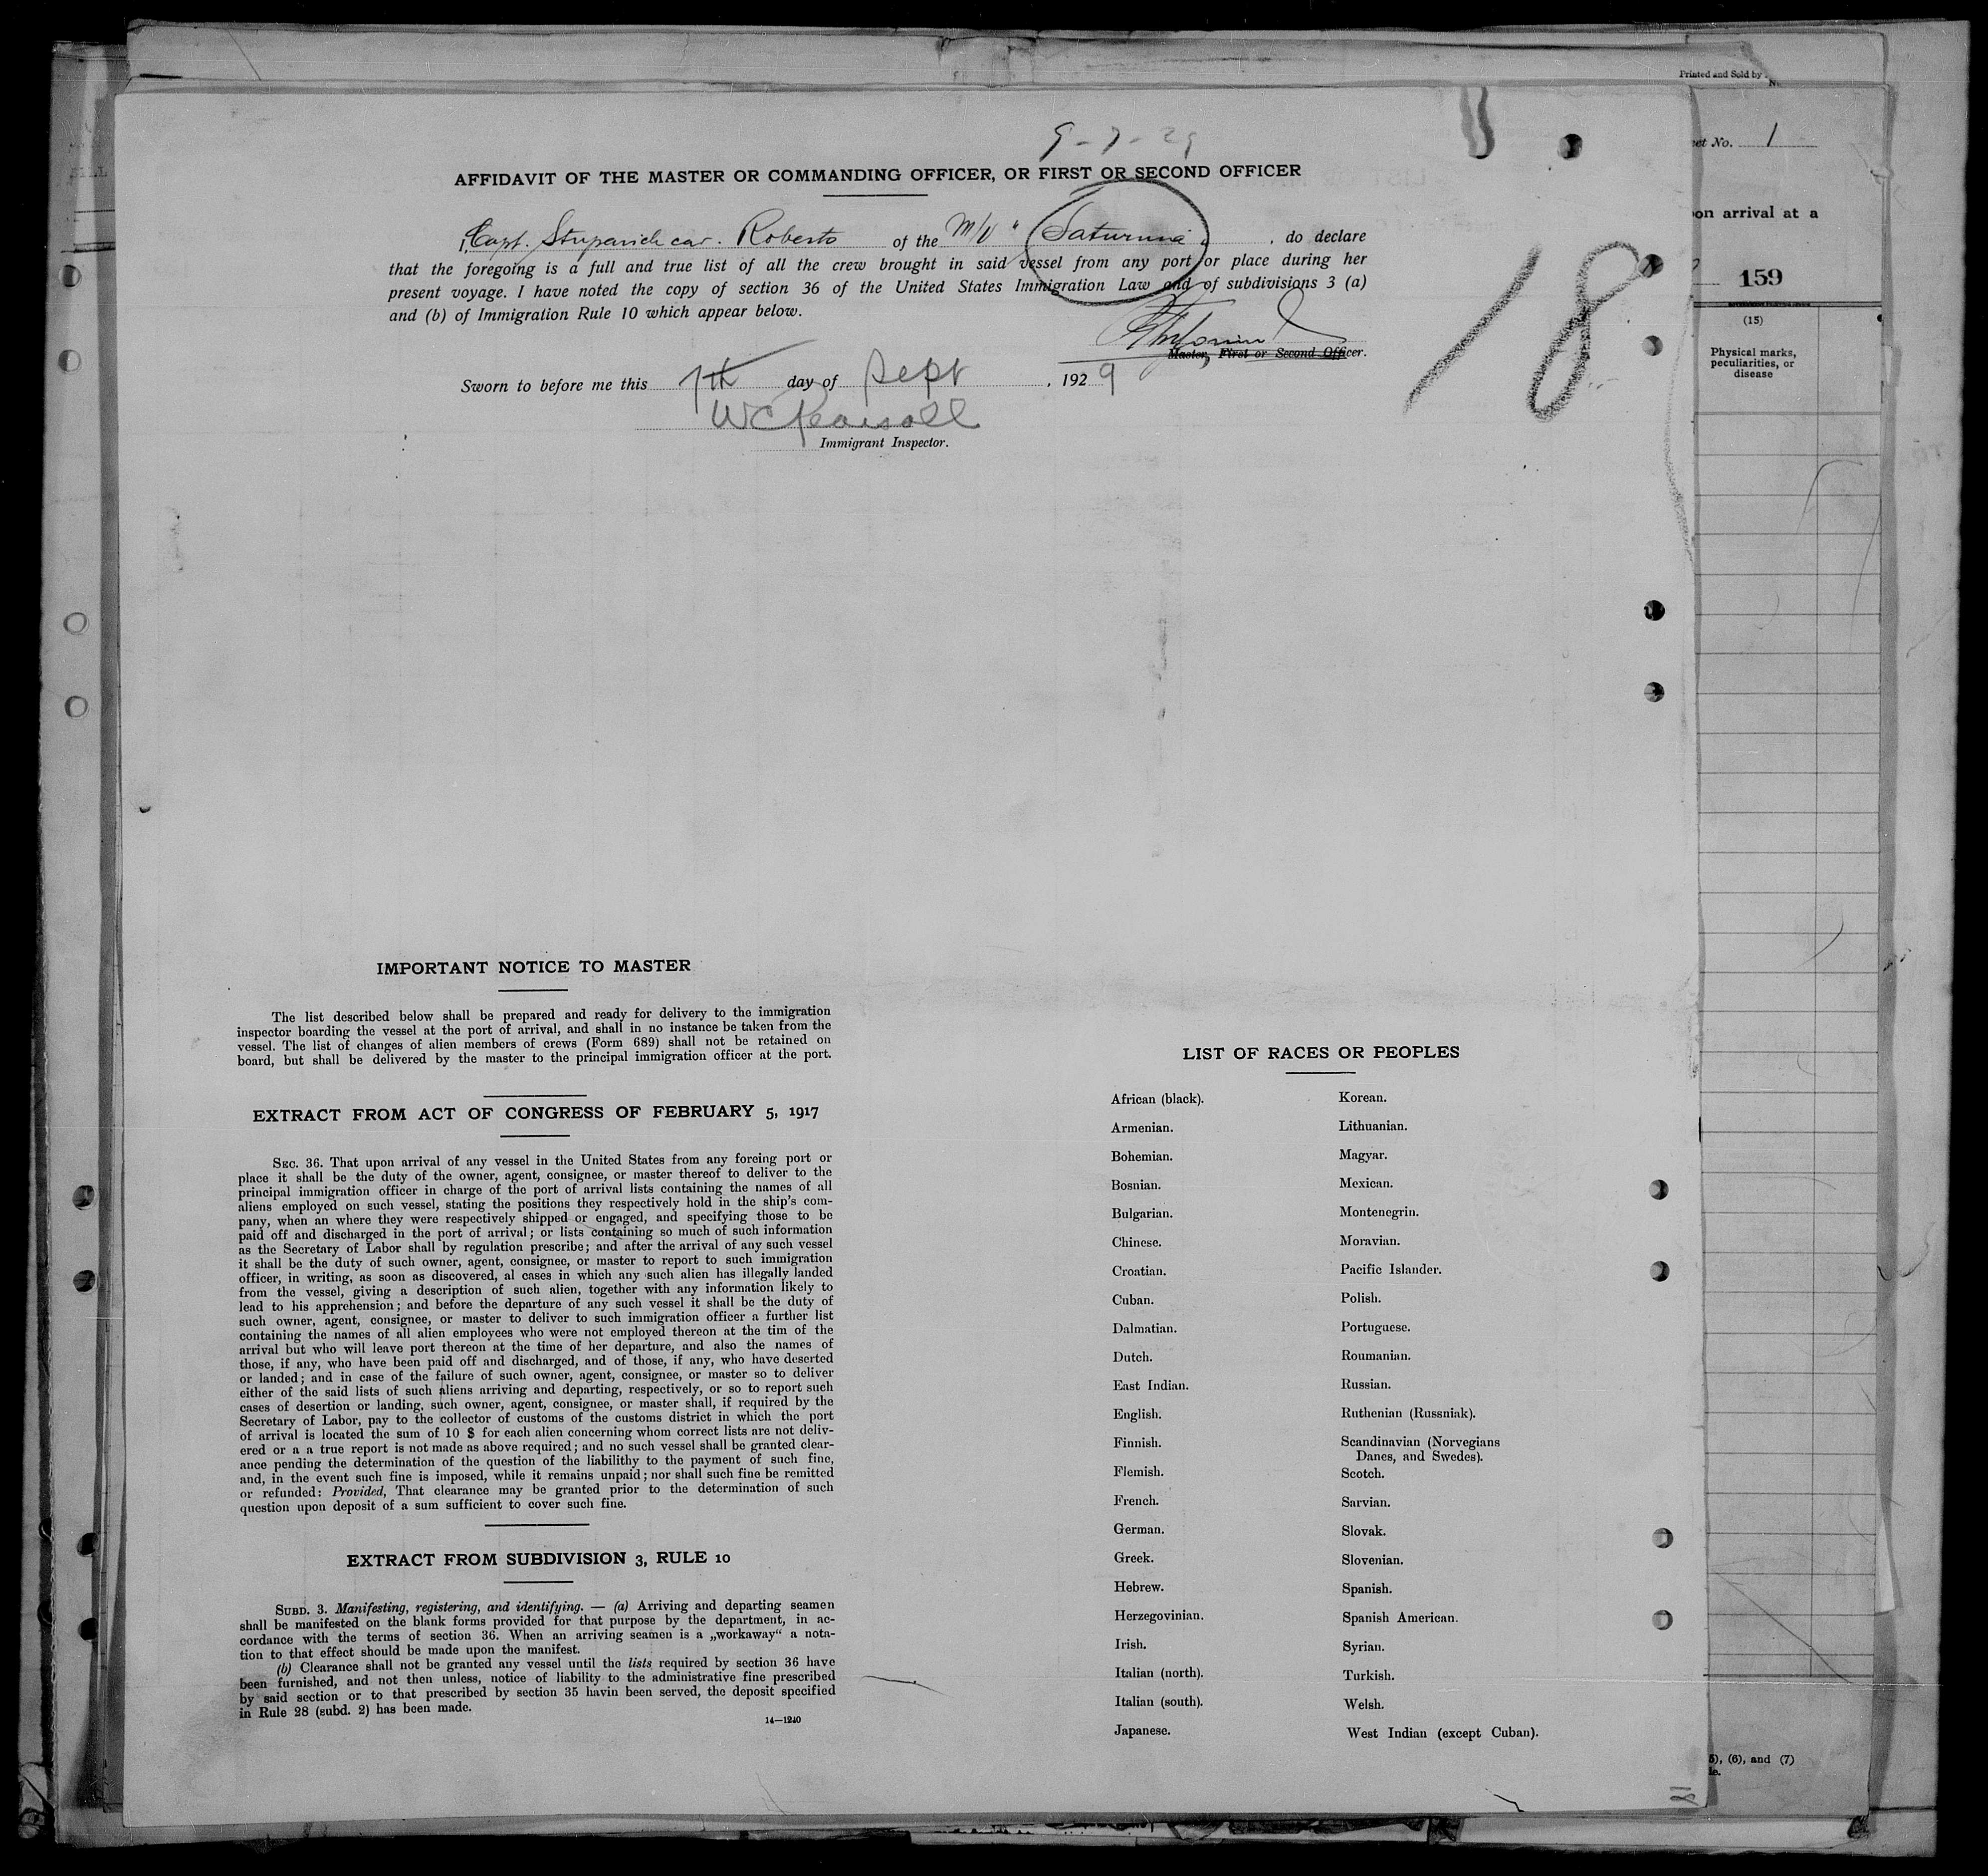 Printed and Sold by
9-7-29
AFFIDAVIT OF THE MASTER OR COMMANDING OFFICER, OR FIRST OR SECOND OFFICER
I, Capt. Stuparich cav. Roberto of the M/V "Saturnia", do declare
that the foregoing is a full and true list of all the crew brought in said vessel from any port or place during her
present voyage. I have noted the copy of section 36 of the United States Immigration Law and of subdivisions 3 (a)
and (b) of Immigration Rule 10 which appear below.
Master, First or Second Officer.
Sworn to before me this 7th day of Sept, 1929
Immigrant Inspector.
18
IMPORTANT NOTICE TO MASTER
The list described below shall be prepared and ready for delivery to the immigration
inspector boarding the vessel at the port of arrival, and shall in no instance be taken from the
vessel. The list of changes of alien members of crews (Form 689) shall not be retained on
board, but shall be delivered by the master to the principal immigration officer at the port.
EXTRACT FROM ACT OF CONGRESS OF FEBRUARY 5, 1917
SEC. 36. That upon arrival of any vessel in the United States from any forcing port or
place it shall be the duty of the owner, agent, consignee, or master thereof to deliver to the
principal immigration officer in charge of the port of arrival lists containing the names of all
aliens employed on such vessel, stating the positions they respectively hold in the ship's com-
pany, when an where they were respectively shipped or engaged, and specifying those to be
paid off and discharged in the port of arrival; or lists containing so much of such information
as the Secretary of Labor shall by regulation prescribe; and after the arrival of any such vessel
it shall be the duty of such owner, agent, consignee, or master to report to such immigration
officer, in writing, as soon as discovered, al cases in which any such alien has illegally landed
from the vessel, giving a description of such alien, together with any information likely to
lead to his apprehension; and before the departure of any such vessel it shall be the duty of
such owner, agent, consignee, or master to deliver to such immigration officer a further list
containing the names of all alien employees who were not employed thereon at the tim of the
arrival but who will leave port thereon at the time of her departure, and also the names of
those, if any, who have been paid off and discharged, and of those, if any, who have deserted
or landed; and in case of the failure of such owner, agent, consignee, or master so to deliver
either of the said lists of such aliens arriving and departing, respectively, or so to report such
cases of desertion or landing, such owner, agent, consignee, or master shall, if required by the
Secretary of Labor, pay to the collector of customs of the customs district in which the port
of arrival is located the sum of 10 $ for each alien concerning whom correct lists are not deliv-
ered or a a true report is not made as above required; and no such vessel shall be granted clear-
ance pending the determination of the question of the liabilithy to the payment of such fine,
and, in the event such fine is imposed, while it remains unpaid; nor shall such fine be remitted
or refunded: Provided, That clearance may be granted prior to the determination of such
question upon deposit of a sum sufficient to cover such fine.
EXTRACT FROM SUBDIVISION 3, RULE 10
SUBD. 3. Manifesting, registering, and identifying. — (a) Arriving and departing seamen
shall be manifested on the blank forms provided for that purpose by the department, in ac-
cordance with the terms of section 36. When an arriving seamen is a „workaway“ a nota-
tion to that effect should be made upon the manifest.
(b) Clearance shall not be granted any vessel until the lists required by section 36 have
been furnished, and not then unless, notice of liability to the administrative fine prescribed
by said section or to that prescribed by section 35 havin been served, the deposit specified
in Rule 28 (subd. 2) has been made.
14—1240
LIST OF RACES OR PEOPLES
African (black).
Armenian.
Bohemian.
Bosnian.
Bulgarian.
Chinese.
Croatian.
Cuban.
Dalmatian.
Dutch.
East Indian.
English.
Finnish.
Flemish.
French.
German.
Greek.
Hebrew.
Herzegovinian.
Irish.
Italian (north).
Italian (south).
Japanese.
Korean.
Lithuanian.
Magyar.
Mexican.
Montenegrin.
Moravian.
Pacific Islander.
Polish.
Portuguese.
Roumanian.
Russian.
Ruthenian (Russniak).
Scandinavian (Norvegians
Danes, and Swedes).
Scotch.
Sarvian.
Slovak.
Slovenian.
Spanish.
Spanish American.
Syrian.
Turkish.
Welsh.
West Indian (except Cuban).
No. 1
on arrival at a
159
(15)
Physical marks,
peculiarities, or
disease
(6), and (7)